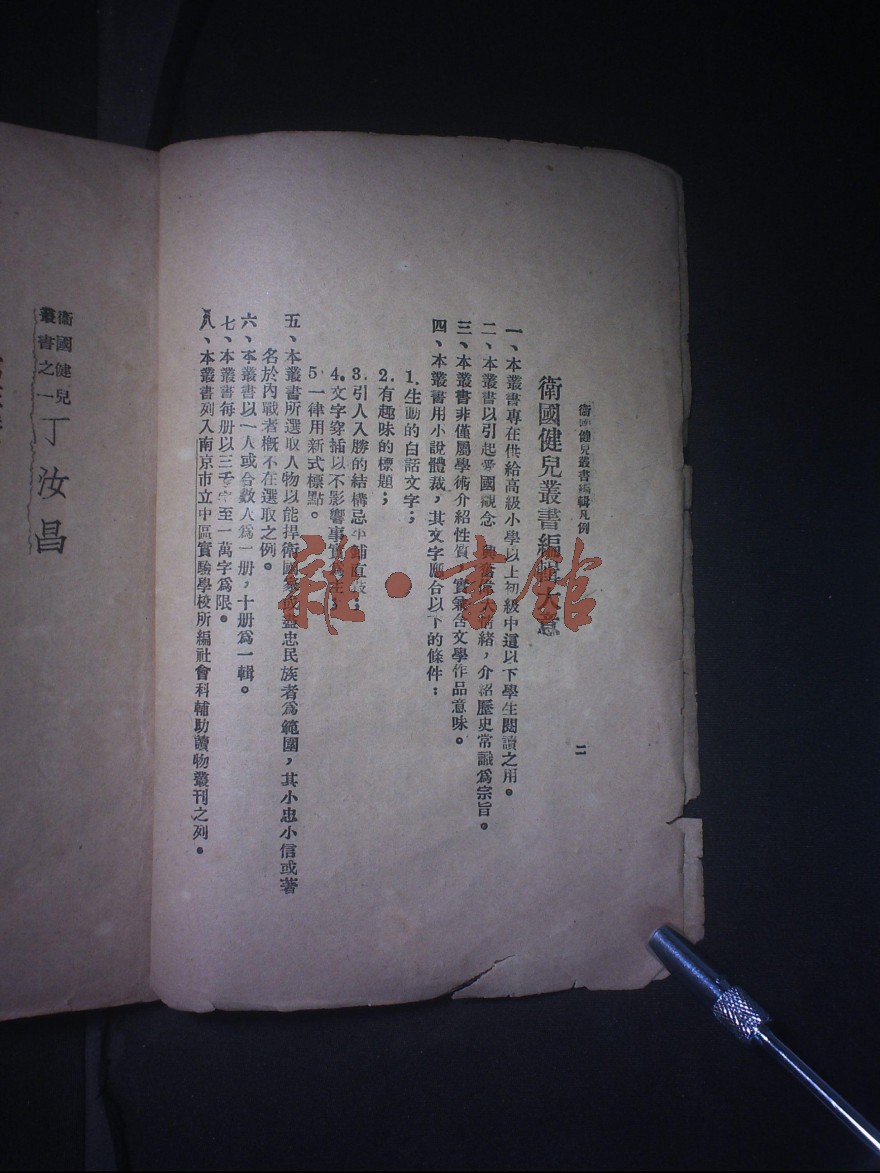 衛國健兒叢書編輯凡例
二
衛國健兒叢書編輯大意
一、本叢書專在供給高級小學以上初級中這以下學生閱讀之用。
二、本叢書以引起愛國觀念 興奮偉大情緒，介紹歷史常識爲宗旨。
三、本叢書非僅屬學術介紹性質 實兼含文學作品意味。
四、本叢書用小說體裁，其文字應合以下的條件：
1.生動的白話文字；
2.有趣味的標題；
3.引人入勝的結構忌平鋪直敍；
4.文字穿插以不影響事實爲主；
5一律用新式標點。
五、本叢書所選取人物以能捍衛國家或盡忠民族者爲範圍，其小忠小信或著
名於內戰者概不在選取之例。
六、本叢書以一人或合數人爲一册，十册爲一輯。
七、本叢書每册以三千字至一萬字爲限。
八、本叢書列入南京市立中區實驗學校所編社會科輔助讀物叢刊之列。
衛國健兒
叢書之一
丁汝昌
雜·書館